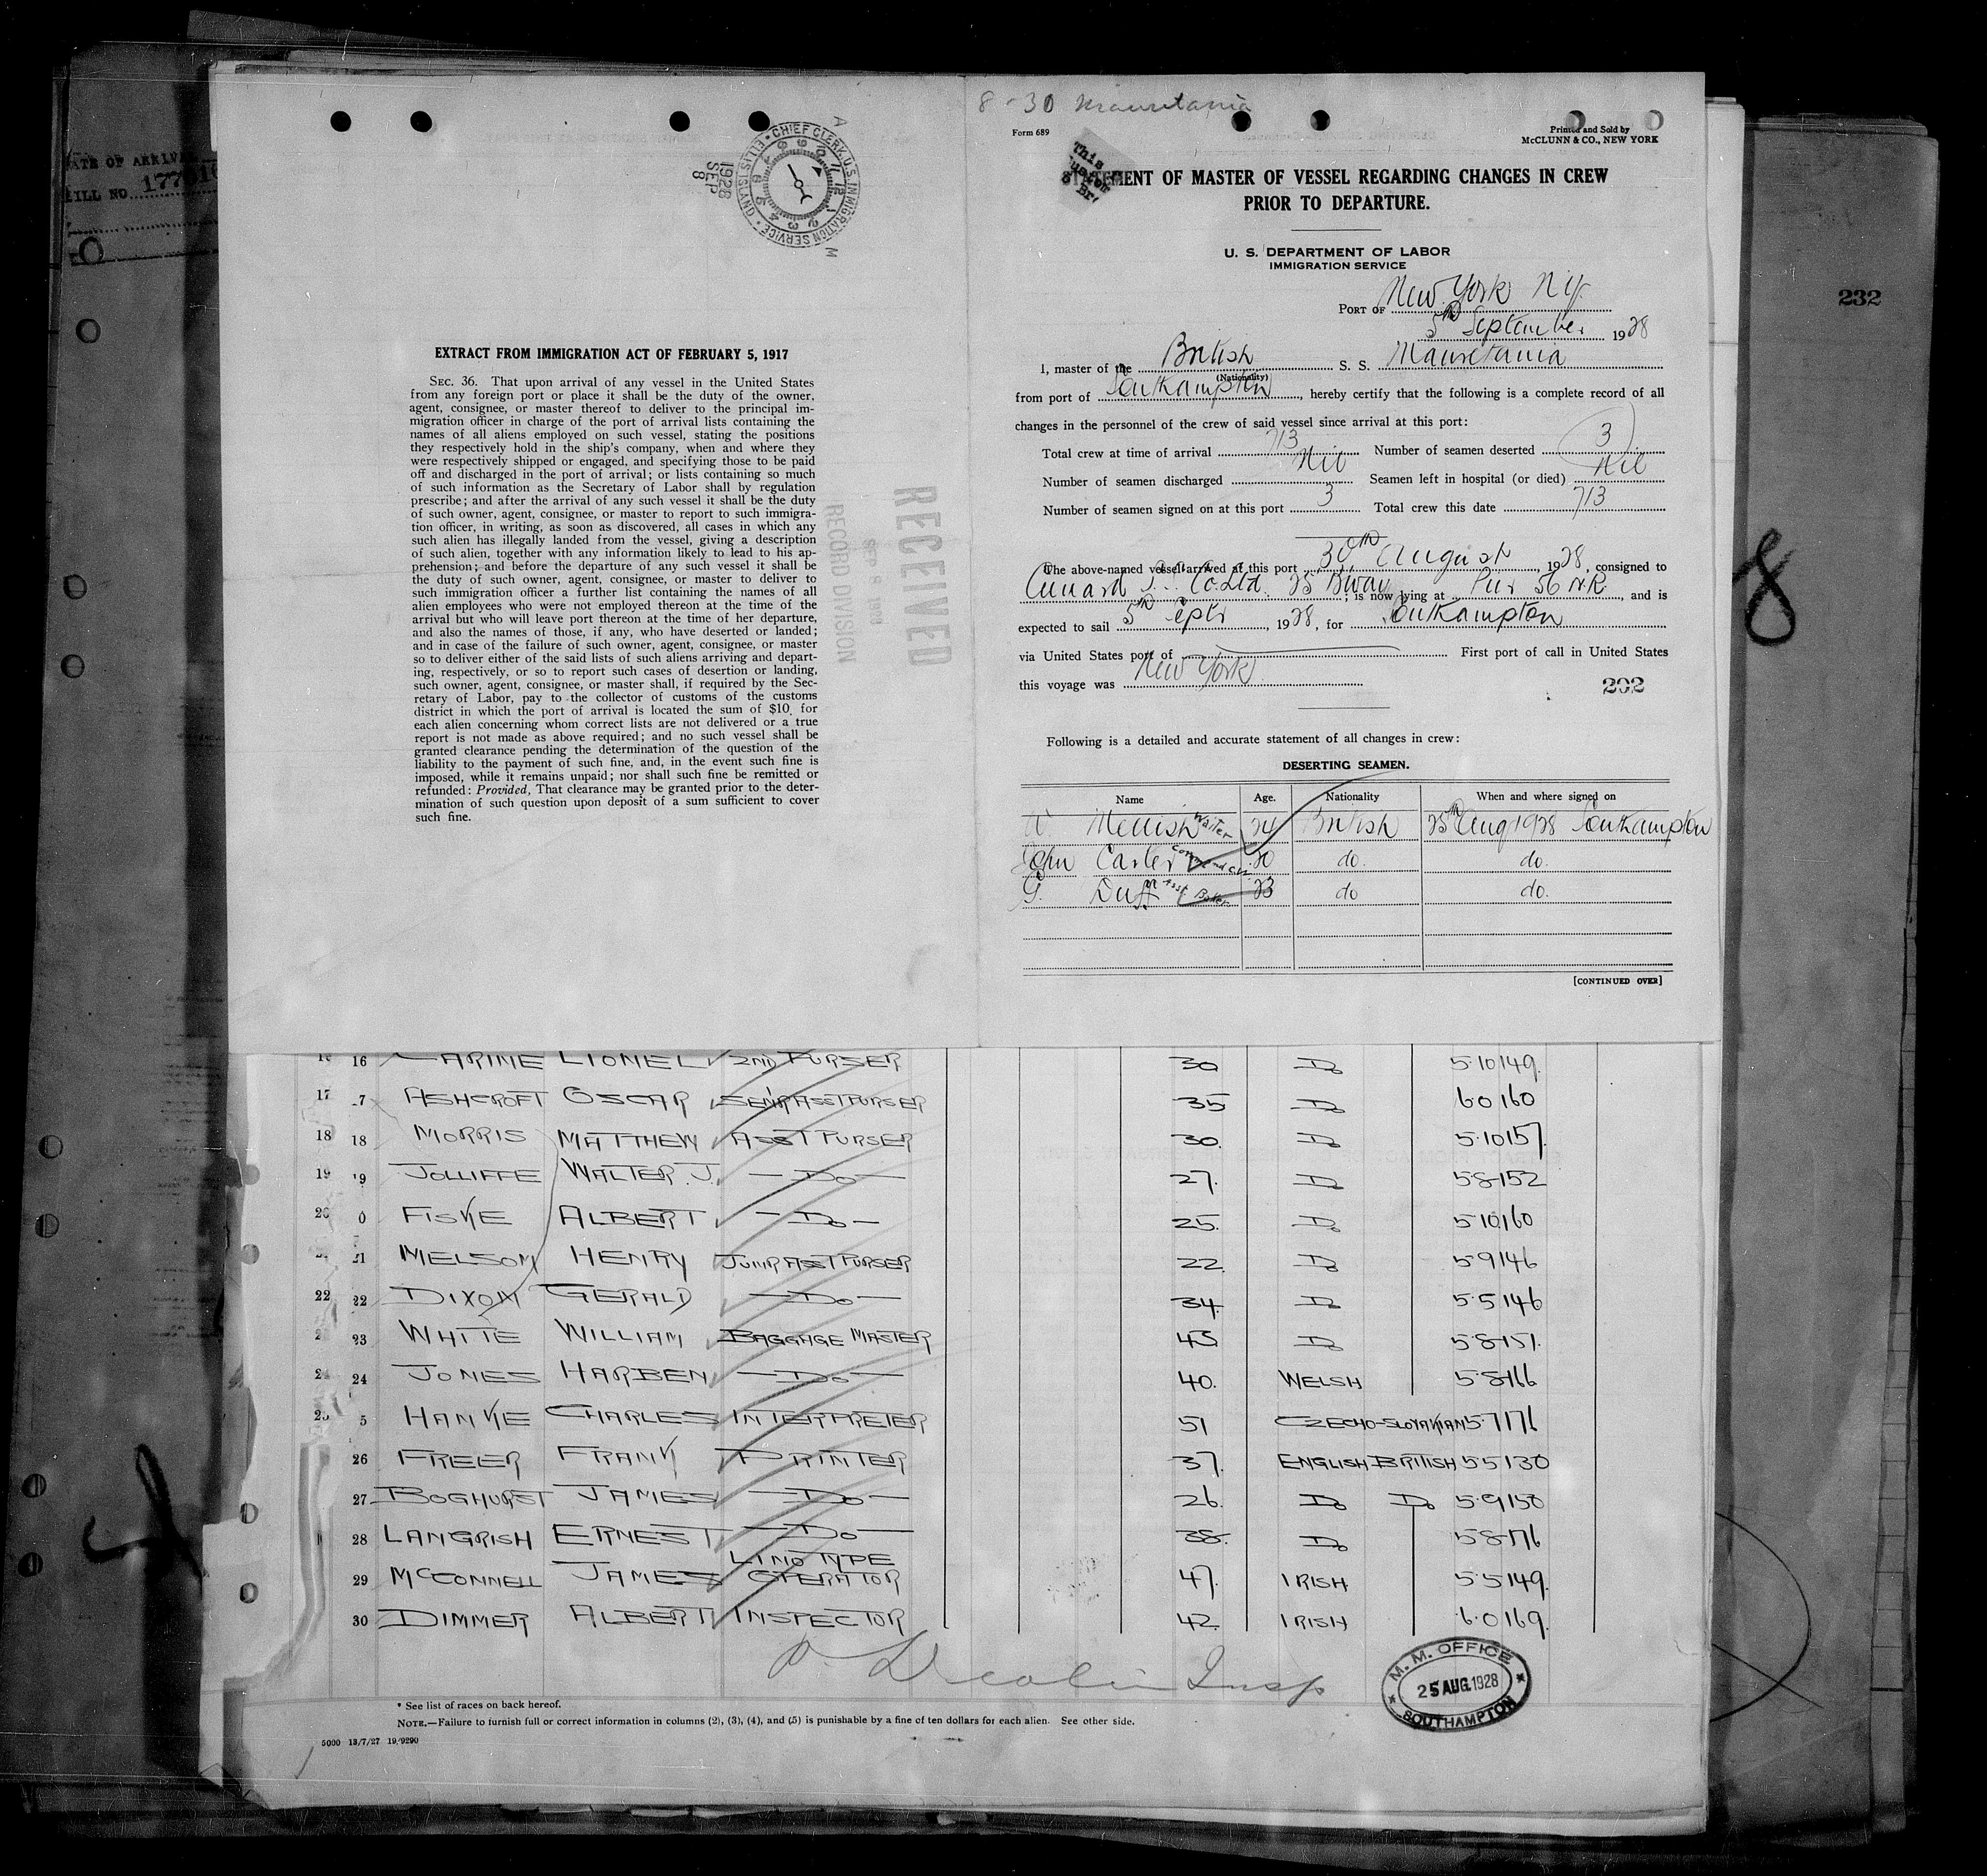 DATE OF ARRIVAL
BILL NO.
232
8
CHIEF CLERK, U.S. IMMIGRATION SERVICE · ELLIS ISLAND ·
1928
SEP
8
A
M
RECEIVED
SEP 8 1928
RECORD DIVISION
EXTRACT FROM IMMIGRATION ACT OF FEBRUARY 5, 1917
SEC. 36. That upon arrival of any vessel in the United States
from any foreign port or place it shall be the duty of the owner,
agent, consignee, or master thereof to deliver to the principal im-
migration officer in charge of the port of arrival lists containing the
names of all aliens employed on such vessel, stating the positions
they respectively hold in the ship's company, when and where they
were respectively shipped or engaged, and specifying those to be paid
off and discharged in the port of arrival; or lists containing so much
of such information as the Secretary of Labor shall by regulation
prescribe; and after the arrival of any such vessel it shall be the duty
of such owner, agent, consignee, or master to report to such immigra-
tion officer, in writing, as soon as discovered, all cases in which any
such alien has illegally landed from the vessel, giving a description
of such alien, together with any information likely to lead to his ap-
prehension; and before the departure of any such vessel it shall be
the duty of such owner, agent, consignee, or master to deliver to
such immigration officer a further list containing the names of all
alien employees who were not employed thereon at the time of the
arrival but who will leave port thereon at the time of her departure,
and also the names of those, if any, who have deserted or landed;
and in case of the failure of such owner, agent, consignee, or master
so to deliver either of the said lists of such aliens arriving and depart-
ing, respectively, or so to report such cases of desertion or landing,
such owner, agent, consignee, or master shall, if required by the Sec-
retary of Labor, pay to the collector of customs of the customs
district in which the port of arrival is located the sum of $10 for
each alien concerning whom correct lists are not delivered or a true
report is not made as above required; and no such vessel shall be
granted clearance pending the determination of the question of the
liability to the payment of such fine, and, in the event such fine is
imposed, while it remains unpaid; nor shall such fine be remitted or
refunded: Provided, That clearance may be granted prior to the deter-
mination of such question upon deposit of a sum sufficient to cover
such fine.
8-30 Mauretania
Form 689
Printed and Sold by
McCLUNN & CO., NEW YORK
STATEMENT OF MASTER OF VESSEL REGARDING CHANGES IN CREW
PRIOR TO DEPARTURE.
U. S. DEPARTMENT OF LABOR
IMMIGRATION SERVICE
PORT OF New York N.Y.
5th September 1928
I, master of the British S. S. Mauretania
(Nationality)
from port of Southampton, hereby certify that the following is a complete record of all
changes in the personnel of the crew of said vessel since arrival at this port:
Total crew at time of arrival 713 Number of seamen deserted 3
Number of seamen discharged Nil Seamen left in hospital (or died) Nil
Number of seamen signed on at this port 3 Total crew this date 713
The above-named vessel arrived at this port 30th August, 1928, consigned to
Cunard S.S. Co. Ltd. 25 Bway; is now lying at Pier 56 N.R., and is
expected to sail 5th Septr, 1928, for Southampton
via United States port of First port of call in United States
this voyage was New York
202
Following is a detailed and accurate statement of all changes in crew:
DESERTING SEAMEN.
Name Age. Nationality When and where signed on
W. Mellish Waiter 24 British 25th Aug 1928 Southampton
John Carter 20 do. do.
G. Duff Asst Baker 23 do do.
[CONTINUED OVER]
16 LIONEL 2ND PURSER 30 Do 5·10 149.
17 ASHCROFT OSCAR SENR ASST PURSER 35 Do 6 0 160
18 18 MORRIS MATTHEW ASST PURSER 30. Do 5·10 157.
19 19 JOLLIFFE WALTER. J. —Do— 27. Do 5 8 152
20 0 FISKE ALBERT —Do— 25. Do 5 10 160
21 MELSOM HENRY JUNR ASST PURSER 22. Do 5 9 146
22 22 DIXON GERALD —Do— 34. Do 5·5 146
23 WHITE WILLIAM BAGGAGE MASTER 43 Do 5·8 151.
24 24 JONES HARBEN —Do— 40. WELSH 5 8 166
25 5 HANKE CHARLES INTERPRETER 51 CZECHO-SLOVAKIAN 5·7 176
26 FREER FRANK PRINTER 37. ENGLISH BRITISH 5 5 130
27 BOGHURST JAMES —Do— 26. Do Do 5·9 150
28 LANGRISH ERNEST —Do— 38. Do 5·8 176
29 McCONNELL JAMES LINOTYPE OPERATOR 47. IRISH 5 5 149.
30 DIMMER ALBERT INSPECTOR 42. IRISH 6·0 169.
Insp
M. M. OFFICE
25 AUG 1928
SOUTHAMPTON
* See list of races on back hereof.
NOTE.—Failure to furnish full or correct information in columns (2), (3), (4), and (5) is punishable by a fine of ten dollars for each alien. See other side.
5000 13/7/27 19/9290